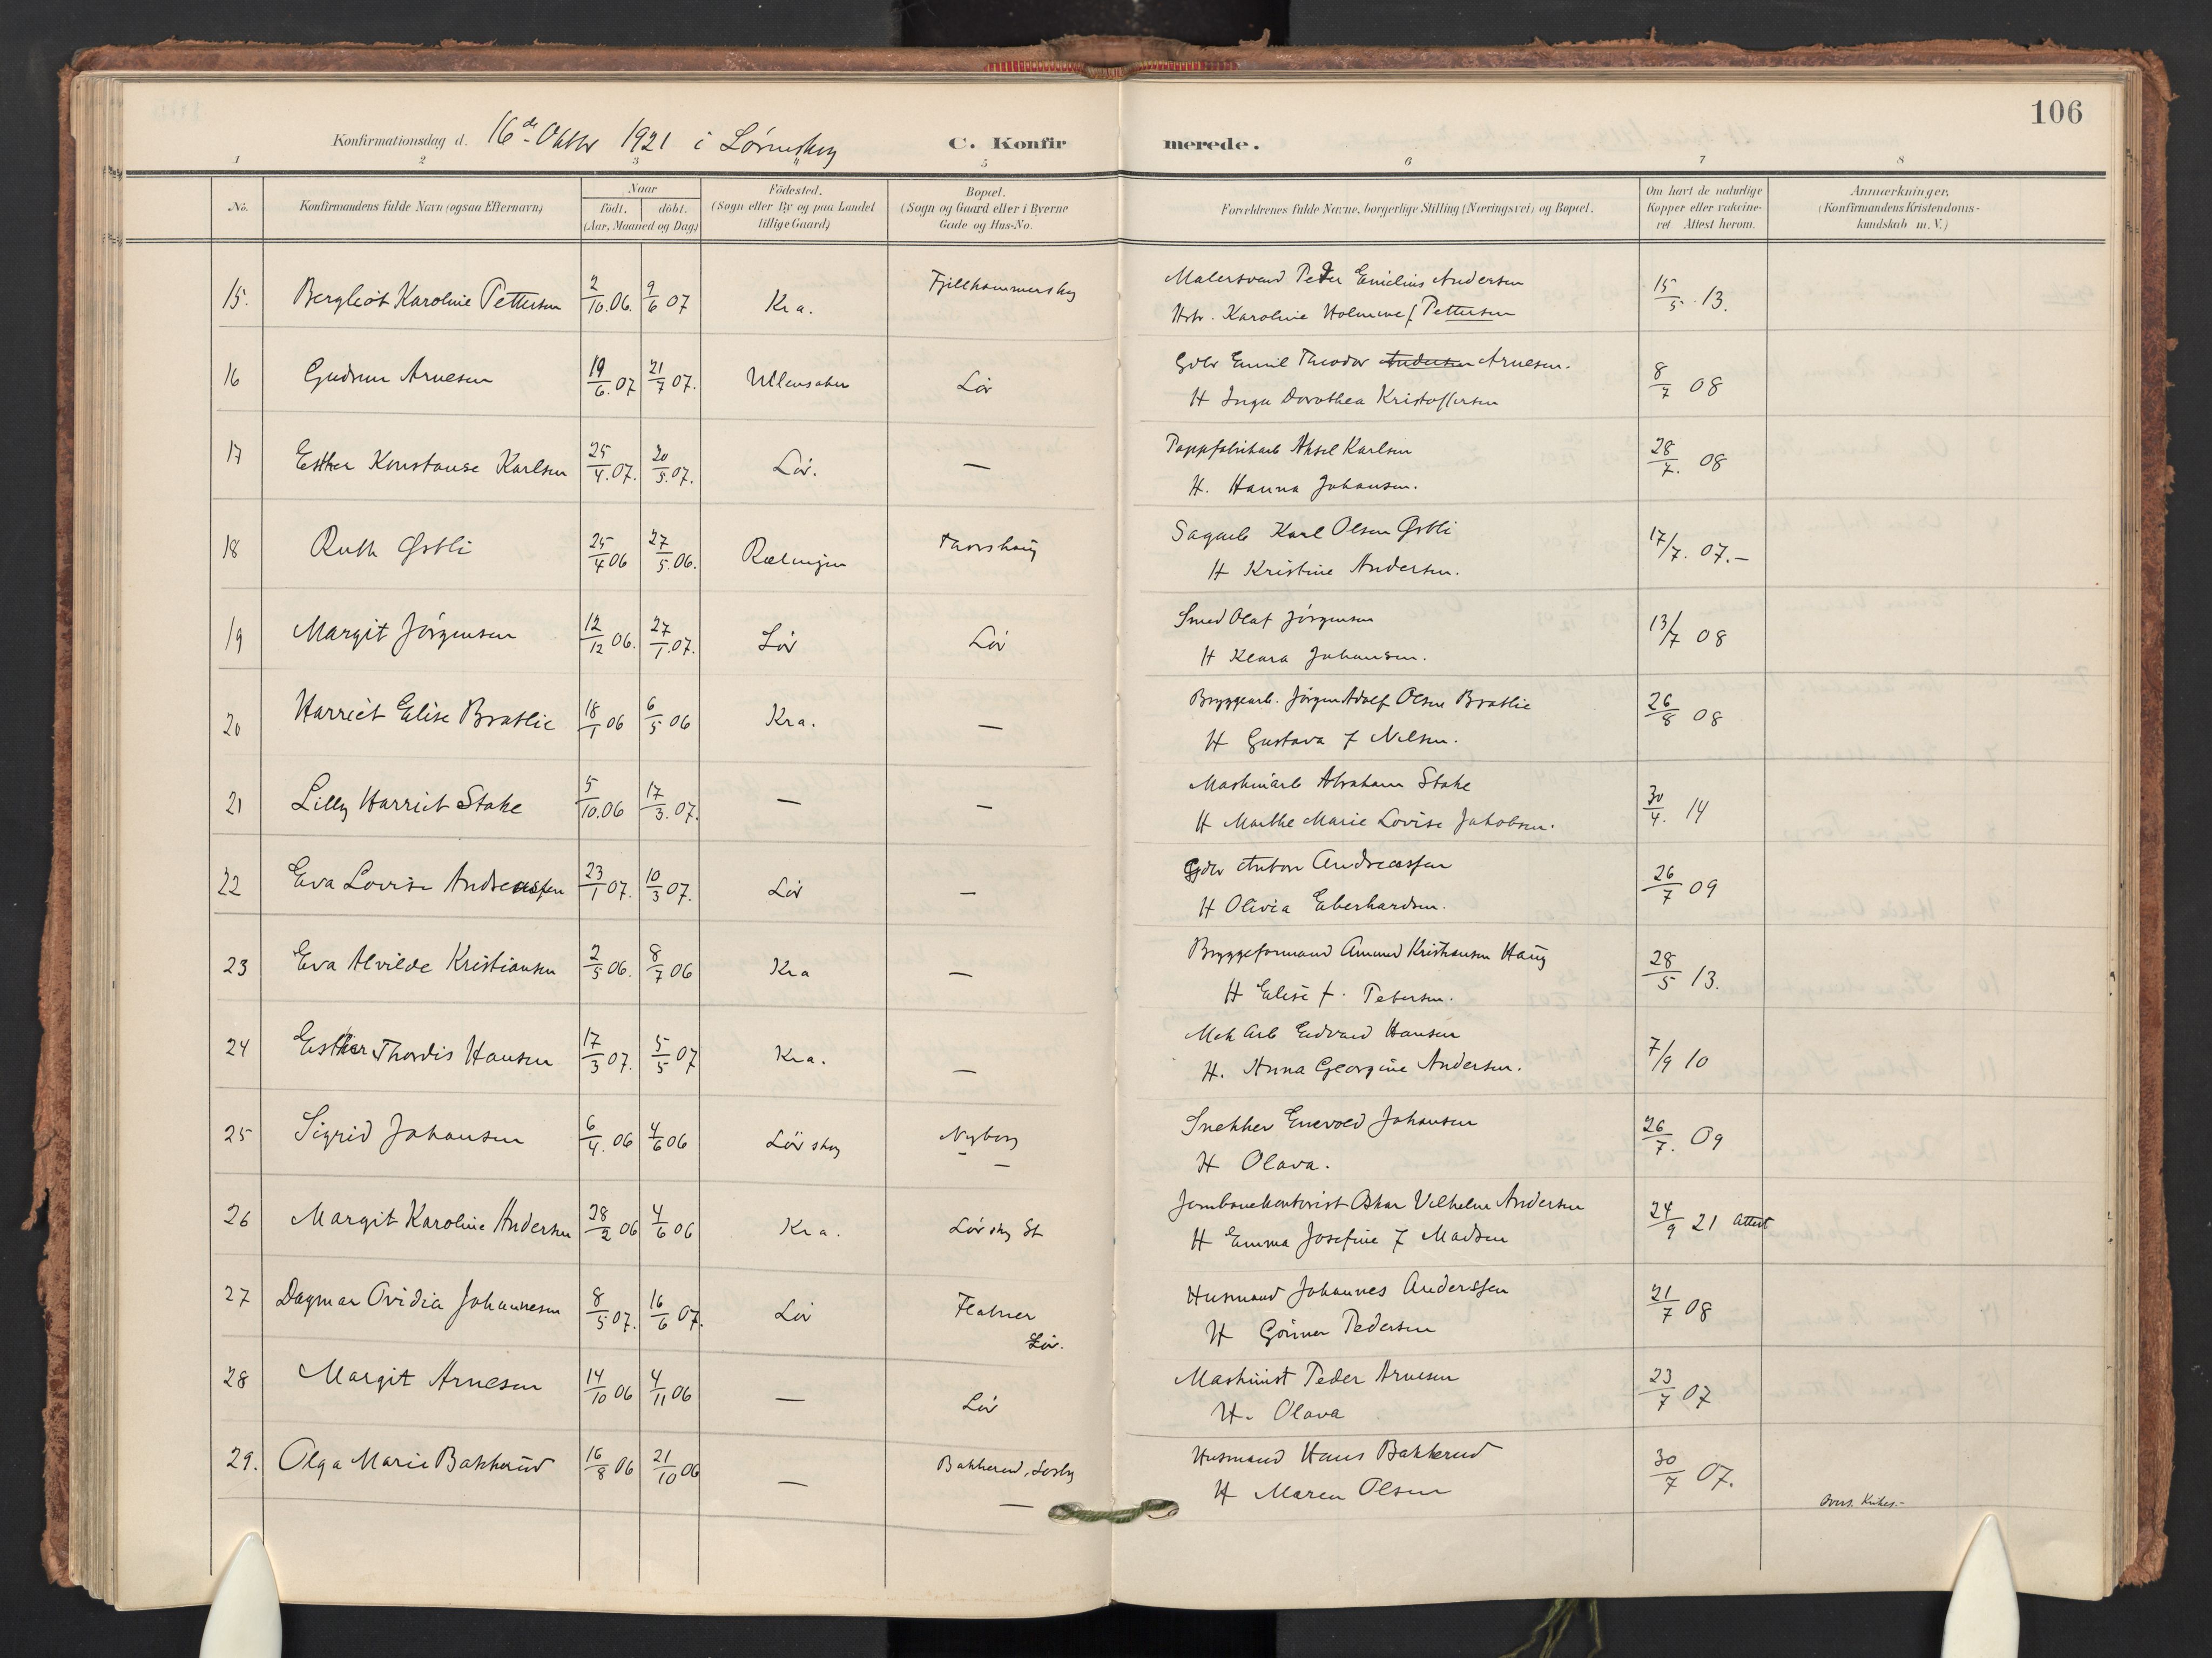 106
Konfirmationsdag d. 16de Oktbr 1921 i Lørenskog C. Konfirmerede.
1 2 3 4 5 6 7 8
No. Konfirmandens fulde Navn (ogsaa Efternavn) Naar født. døbt. (Aar, Maaned og Dag) Fødested. (Sogn eller By og paa Landet tillige Gaard) Bopæl. (Sogn og Gaard eller i Byerne Gade og Hus-No. Forældrenes fulde Navne, borgerlige Stilling (Næringsvei) og Bopæl. Om havt de naturlige Kopper eller vakcineret Attest herom. Anmærkninger. (Konfirmandens Kristendomskundskab m. V.)
15. Bergliot Karoline Pettersen 2/10.06. 9/6 07 Kra. Fjellhammerskog Malersvend Peder Emilius Andersen 15/5. 13.
Hstr. Karoline Holmine f Pettersen
16 Gudrun Arnesen 19/6.07 21/7 07. Ullensaker Lør Gdbr Emil Theodor Andersen Arnesen. 8/7 08
H Inga Dorothea Kristoffersen
17 Esther Konstanse Karlsen 25/4.07. 20/5.07. Lør. — Pappfabrikarb Aksel Karlsen 28/7. 08
H. Hanna Johansen.
18 Ruth Østli 25/4 06 27/5.06. Rælingen Thorshaug Sagarb Karl Olsen Østli 17/7. 07.—
H Kristine Andersen.
19 Margit Jörgensen 12/12 06. 27/1.07. Lør Lør Smed Olaf Jörgensen 13/7 08
H Klara Johansen.
20 Harriet Elise Bratlie 18/1 06 6/5 06 Kra. — Bryggearb. Jørgen Adolf Olsen Bratlie 26/8 08
H Gustava f Nilsen.
21 Lilly Harriet Stake 5/10.06 17/3.07. — — Maskinarb Abraham Stake 30/4. 14
H Marthe Marie Lovise Jakobsen.
22 Eva Lovise Andreassen 23/1 07. 10/3 07. Lør — Gdbr Anton Andreassen 26/7 09
H Olivia Eberhardsen.
23 Eva Alvilde Kristiansen 2/5 06. 8/7 06 Kra — Bryggeformand Amund Kristiansen Haug 28/5 13.
H Elise f. Petersen.
24 Esther Thordis Hansen 17/3 07. 5/5 07 Kra. — Mek Arb Edvard Hansen 7/9 10
H. Anna Georgine Andersen.
25 Sigrid Johansen 6/4. 06 4/6 06 Lørskog Nyborg — Snekker Enevold Johansen 26/7. 09
H Olava.
26 Margit Karoline Andersen 28/2 06 4/6 06 Kra. Lørskog St Jernbanekontorist Oskar Vilhelm Andersen 24/9 21 Attest
H Emma Josefine f Madsen
27 Dagmar Ovidia Johannesen 8/5 07. 16/6 07. Lør Flatner Lør. Husmand Johannes Anderssen 21/7 08
H Gunner Pedersen
28 Margit Arnesen 14/10 06 4/11 06 — Lør Maskinist Peder Arnesen 23/7 07
H. Olava
29. Olga Marie Bakkerud 16/8 06 21/10 06 — Bakkerud, Losby — Husmand Hans Bakkerud 30/7 07.
H Maren Olsen